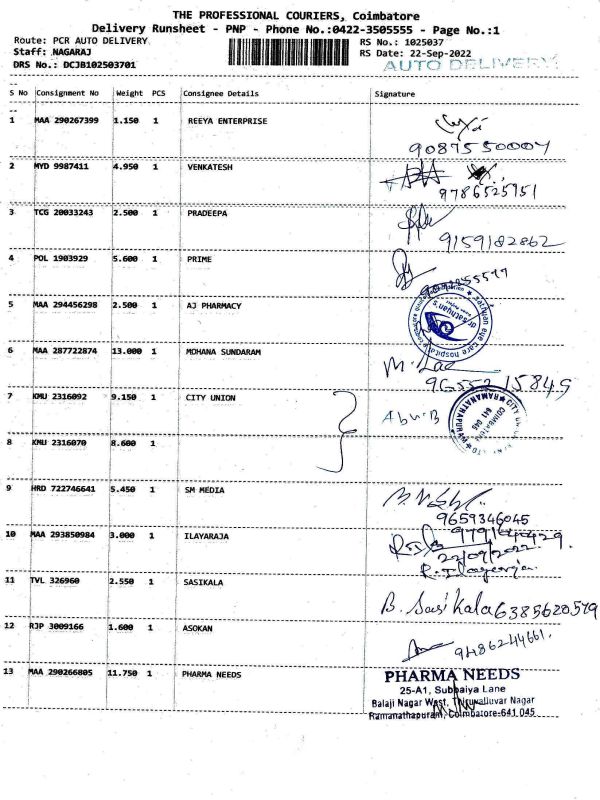 THE PROFESSIONAL COURIERS, Coimbatore
Delivery Runsheet - PNP - Phone No.:0422-3505555 - Page No.:1
Route: PCR AUTO DELIVERY RS No.: 1025037
Staff: NAGARAJ RS Date: 22-Sep-2022
DRS No.: DCJB102503701 AUTO DELIVERY
S No Consignment No Weight PCS Consignee Details Signature
1 MAA 290267399 1.150 1 REEYA ENTERPRISE
2 MYD 9987411 4.950 1 VENKATESH
9786525951
3 TCG 20033243 2.500 1 PRADEEPA
9159182862
4 POL 1903929 5.600 1 PRIME
5 MAA 294456298 2.500 1 AJ PHARMACY
dr.sathyan's
sathyan eye care hospital
6 MAA 287722874 13.000 1 MOHANA SUNDARAM
7 KMU 2316092 9.150 1 CITY UNION
RAMANATHAPURAM
COIMBATORE
641 045
8 KMU 2316070 8.600 1
9 HRD 722746641 5.450 1 SM MEDIA
9659346045
10 MAA 293850984 3.000 1 ILAYARAJA
22/09/2022
11 TVL 326960 2.550 1 SASIKALA
B. Sasikala 6385620579
12 RJP 3009166 1.600 1 ASOKAN
9486244661.
13 MAA 290266805 11.750 1 PHARMA NEEDS
PHARMA NEEDS
25-A1, Subbaiya Lane
Balaji Nagar West, Thiruvalluvar Nagar
Ramanathapuram, Coimbatore-641 045